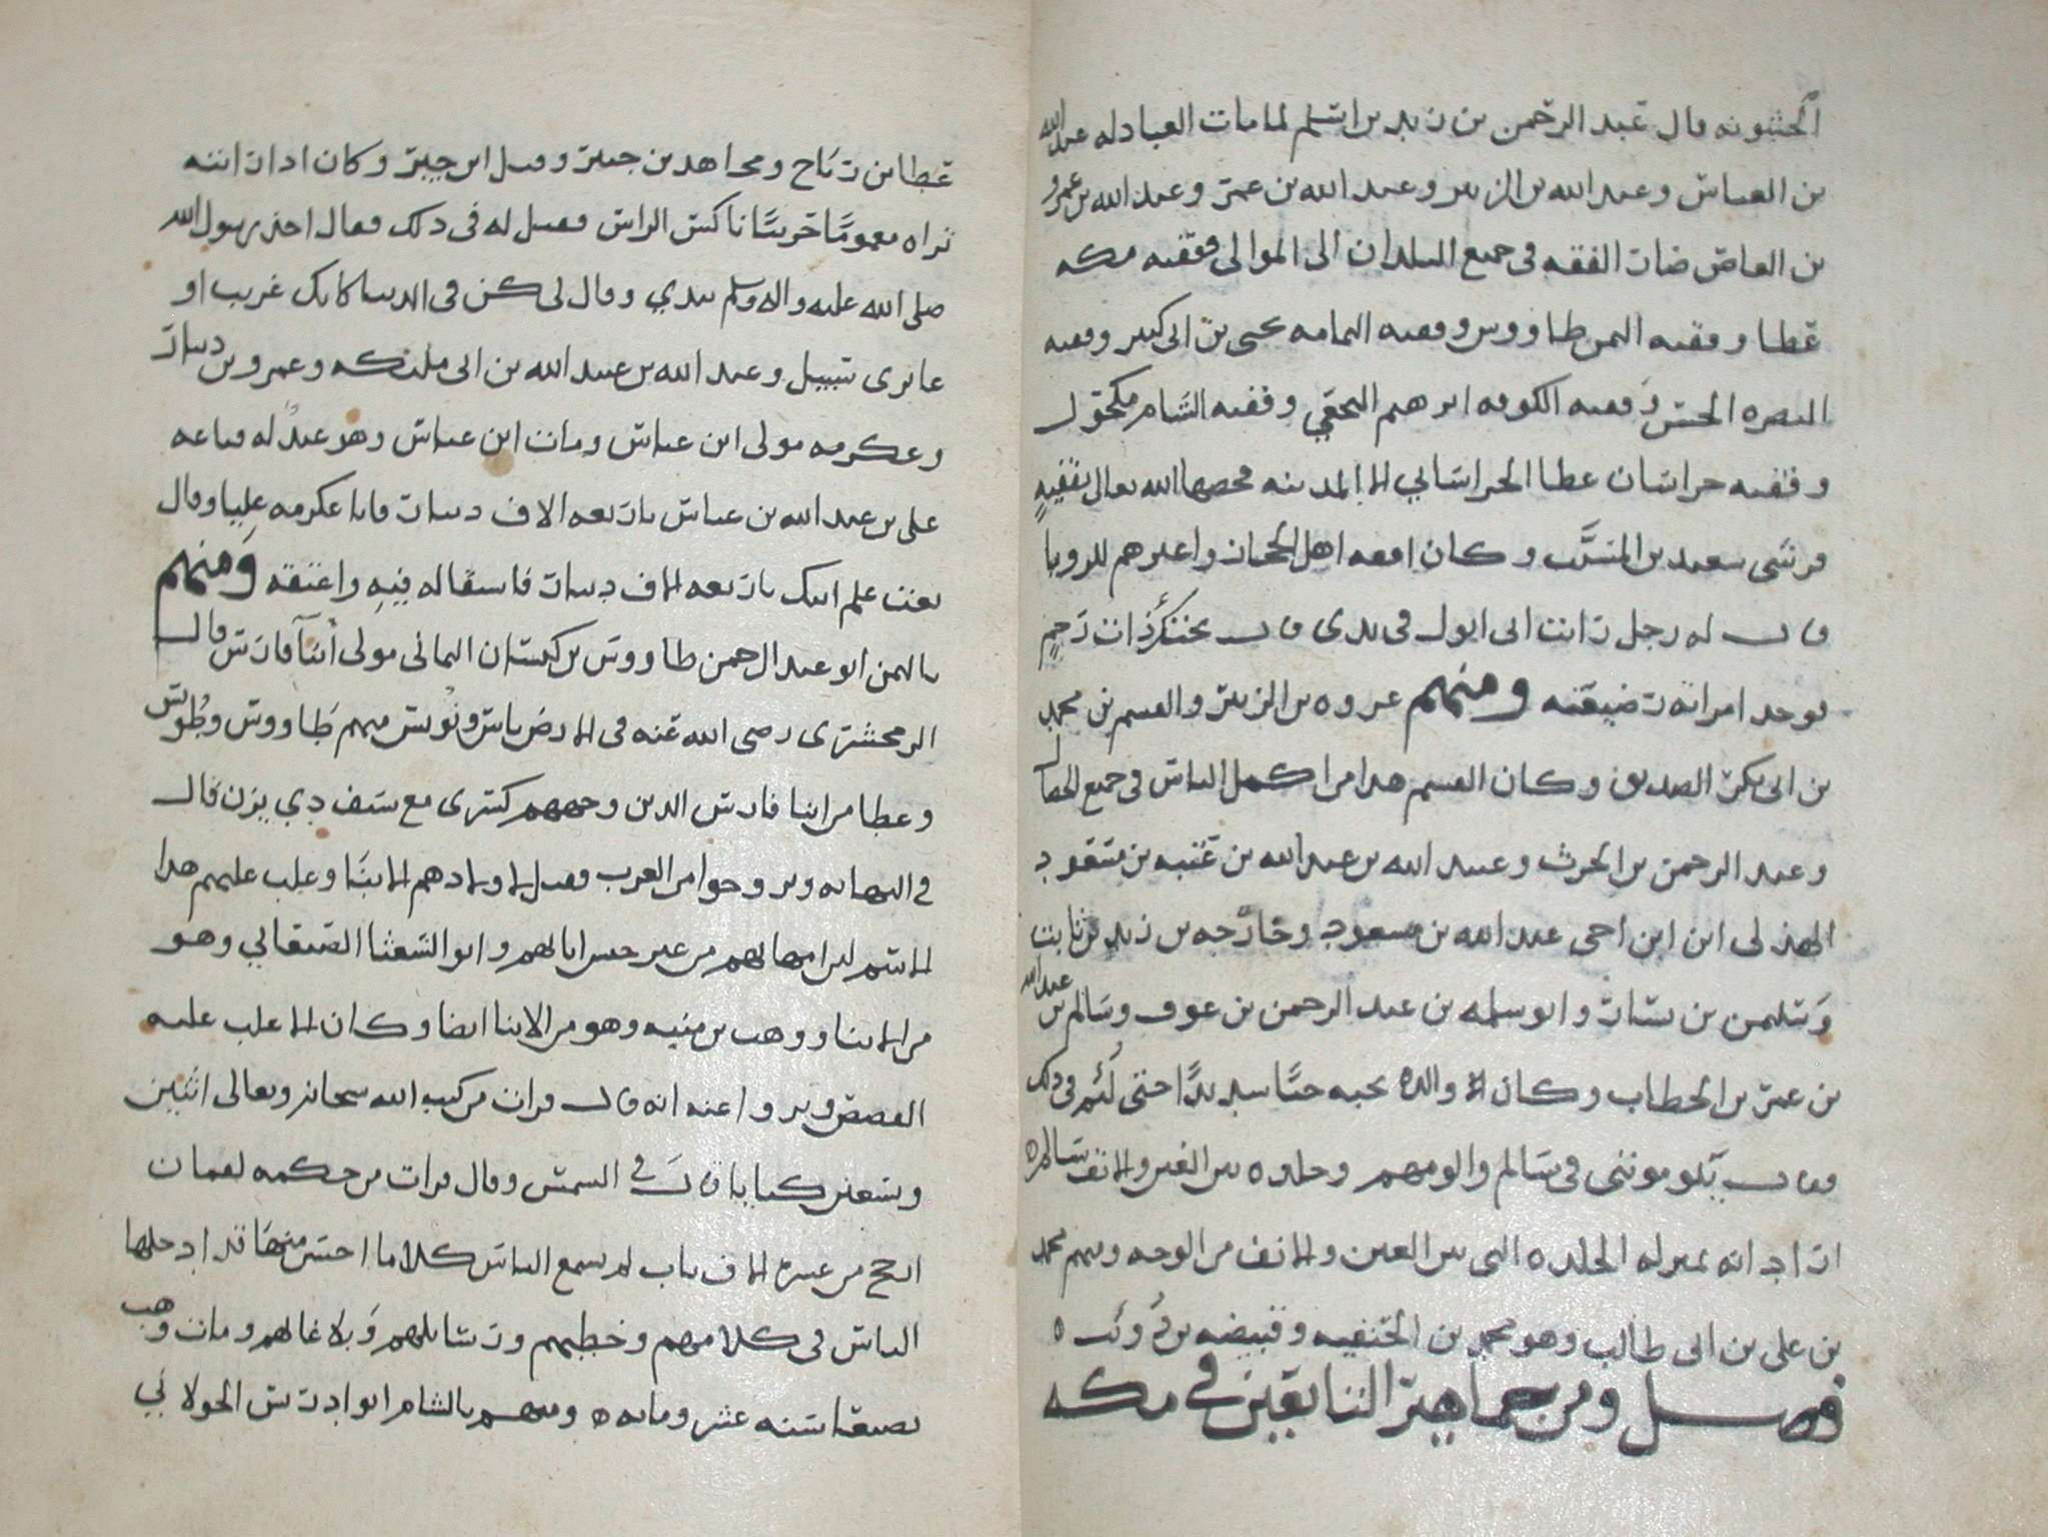 الحشويه قال عبد الرحمن بن زيد بن اسلم لما مات العبادله عبد الله
بن العباس وعبد الله بن الزبير وعبد الله بن عمر وعبد الله بن عمرو
بن العاص صار الفقه في جميع البلدان الى الموالى ففقيه مكه
عطا وفقيه اليمن طاووس وفقيه اليمامه يحيى بن ابى كثير وفقيه
البصره الحسن وفقيه الكوفه ابرهيم النخعي وفقيه الشام مكحول
وفقيه خراسان عطا الخراساني الا المدينه فخصها الله تعالى بفقيهٍ
قرشى سعيد بن المسيَّب وكان افقه اهل الحجاز واعبرهم للرويا
قال له رجل رايت انى ابول فى يدى قال تحتك ذات رحمٍ
فوجد امراته رضيعته ومنهم عروه بن الزبير والقسم بن محمد
بن ابى بكر الصديق وكان القسم هذا من اكمل الناس فى جميع الخصال
وعبد الرحمن بن الحرث وعبيد الله بن عبد الله بن عتبه بن مسعود
الهذلى ابن ابن اخى عبد الله بن مسعود وخارجه بن زيد بن ثابت
وسليمن بن يسار وابو سلمه بن عبد الرحمن بن عوف وسالم بن عبد الله
بن عمر بن الخطاب وكان والده يحبه حبًا شديدًا حتى لُئم فى ذلك
فقال يلوموننى فى سالم والومهم وجلده بين العين والانف سالم ه
اراد انه بمنزله الجلده التى بين العين والانف من الوجه ومنهم محمد
بن على بن ابى طالب وهو محمد بن الحنفيه وقبيصه بن ذُويب ه
فصل ومن جماهير التابعين في مكه
عطا بن رباح ومجاهد بن جبير وقيل ابن جبر وكان اذا رايته
تراه مغمومًا خرسًا ناكس الراس فقيل له فى ذلك فقال اخذ رسول الله
صلى الله عليه واله وسلم بيدي وقال لى كن فى الدنيا كانك غريب او
عابرى سبيل وعبد الله بن عبيد الله بن ابى مليكه وعمرو بن دينار
وعكرمه مولى ابن عباس ومات ابن عباس وهو عبدٌ له فباعه
على بن عبد الله بن عباس باربعه الاف دينار فاتا عكرمه عليا وقال
بعت علم ابيك باربعه الاف دينار فاستقاله فيه واعتقه ومنهم
باليمن ابو عبد الرحمن طاووس بن كيسان اليمانى مولى أبنآ فارس قال
الزمحشرى رضى الله عنه فى الارض ناس ونُويس منهم طاووس وطُويس
وعطا من ابنا فارس الذين وجههم كسرى مع سيف ذي يزن قال
في النهايه وتزوجوا من العرب فقيل لاولادهم الابنا وغلب عليهم هذا
الاسم لان امهاتهم من غير جنس ابايهم وابو الشعثا الصنعاني وهو
من الابنا ووهب بن منبه وهو من الابنا ايضا وكان الاغلب عليه
القصص ويروا عنه انه قال قرات من كتب الله سبحانه وتعالى اثنين
وسبعين كتابا قال في الشمس وقال قرات من حكمه لقمان
ارجح من عشره الاف باب لم يسمع الناس كلاما احسن منها قد ادخلها
الناس فى كلامهم وخطبهم ورسايلهم وبلاغاتهم ومات وهب
بصنعا سنه عشر ومايه ه ومنهم بالشام ابو ادريس الخولاني